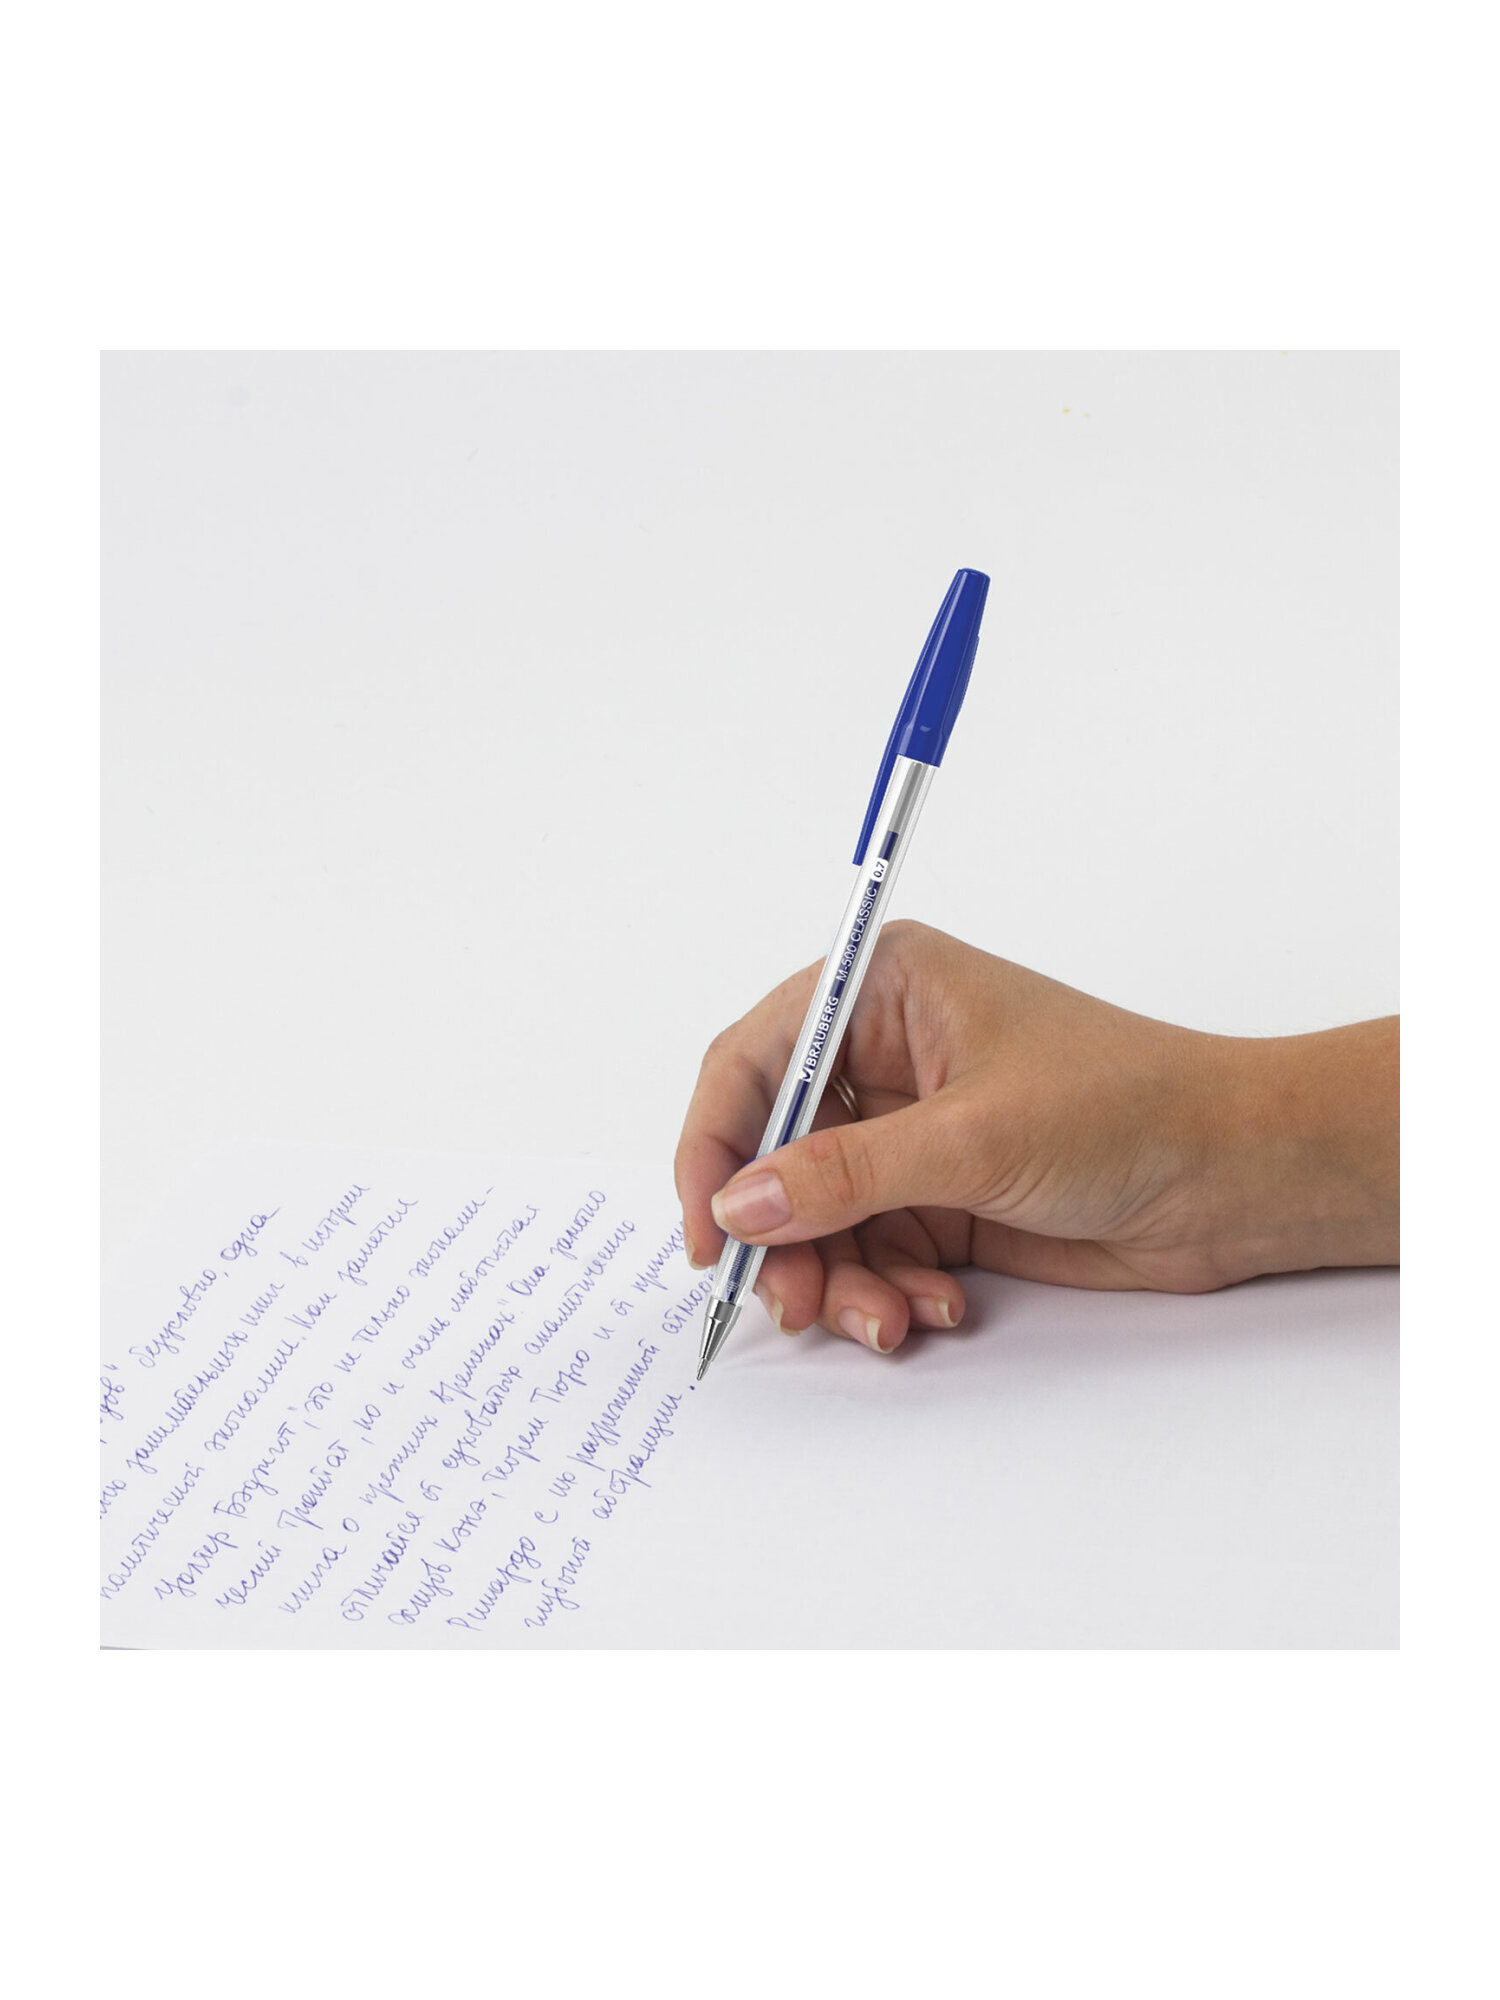 BRAUBERG M-500 CLASSIC 0.7
безусловно, одна
занимательных книг в истории
политической экономии. Как заметил
Уолтер Бэджгот, "это не только экономи-
ческий трактат, но и очень любопытная
книга о прежних временах". Она заметно
отличается от суховатых аналитических
Кэнэ, теорем Тюрго и от
Рикардо с их разреженной
глубокой абстракции.